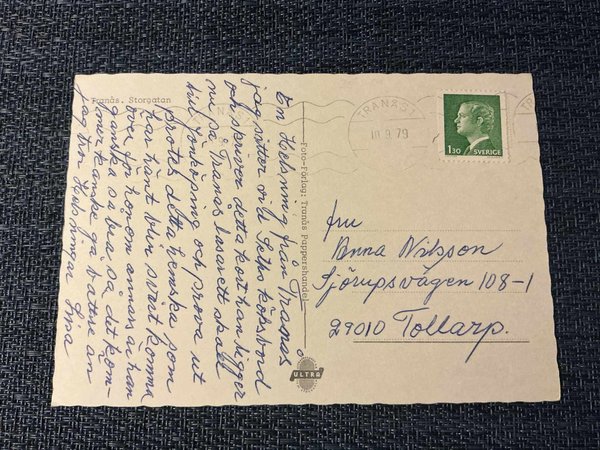 Tranås. Storgatan
En Hjelsning från Tranås
jag sitter vill köksbord
och skriver detta kort han ligger
nu på Tranås lasarett skall
till Jönköping och prova ut
protes detta hemska som
har hänt blir svårt komma
över för honom annars är han
ganska så bra så det kom-
mer kanske gå bättre än
jag tror Hjelsningar Lisa
Foto-Förlag: Tranås Pappershandel
ULTRA
TRANÅS
10.9.79
1.30 SVERIGE
fru
Anna Nilsson
Sjörupsvägen 108-1
29010 Tollarp.